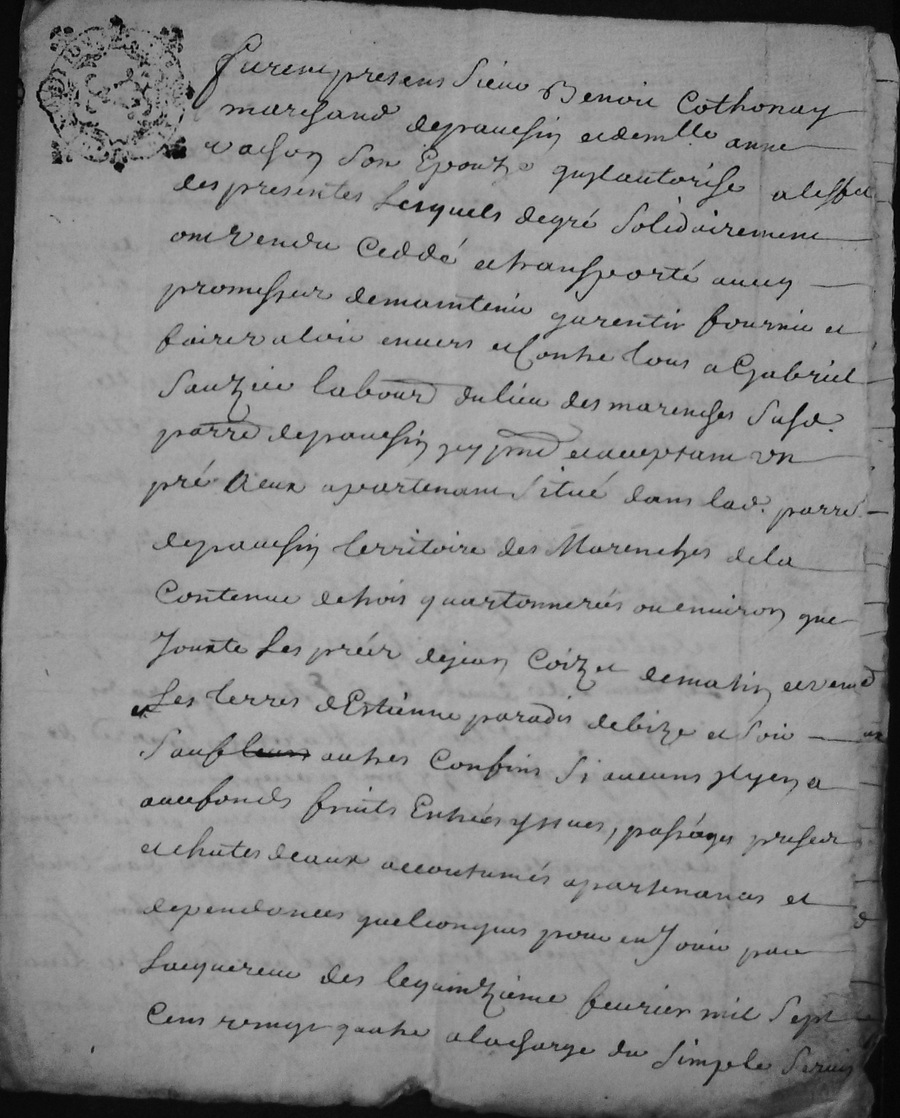 furent presens Sieur Benoit Cothonay
marchand de panessin et demlle anne
vachon Son Epouze quil autorise a leffet
des presentes Lesquels degré Solidairement
ont vendu Ceddé et transporté avecq
promesseur de maintenir garentir fournir et
faire valoir envers et Contre tous a Gabriel
Sauzive labourr du lieu des marenches Susd.
parre de panessin icy pnt et acceptant un
pré a eux apartenant Situé dans lad. parre
de panessin territoire des Marenches de la
Contenue de trois quartonnerées ou environ que
Jouxte Les préer de jean Coizet de matin et vent
Les terres d'Estienne paradis de bize et Soir
Sauf autres Confins Si aucuns il y en a
avec fonds fruits Entrées yssues, passages priser
et chutes deaux accoutumés apartenances et
dependances quelconques pour en Jouir par
Lacquereur des le quinzieme feurier mil Sept
Cens vingt quatre a la charge du Simple Servis